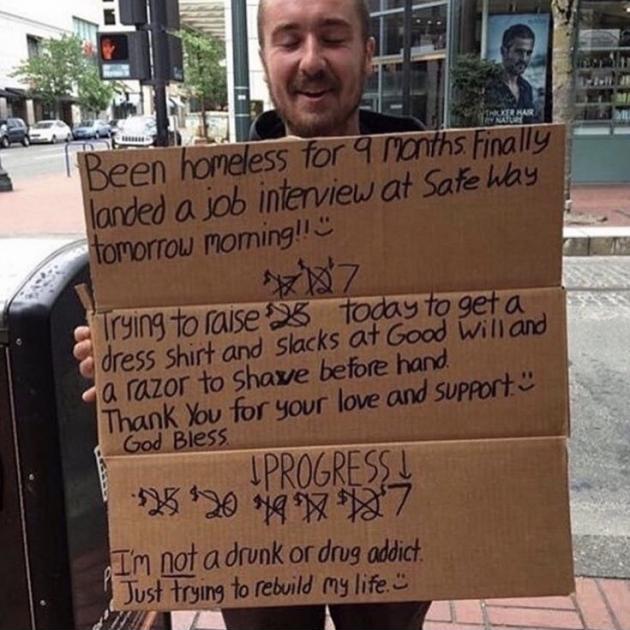 Been homeless for 9 months. Finally
landed a job interview at Safe Way
tomorrow morning!!
$17 $12 7
Trying to raise $25 today to get a
dress shirt and slacks at Good Will and
a razor to shave before hand.
Thank You for your love and support.
God Bless.
↓PROGRESS↓
$25 $20 $19 $17 $12 7
I'm not a drunk or drug addict.
Just trying to rebuild my life.
THICKER HAIR
BY NATURE